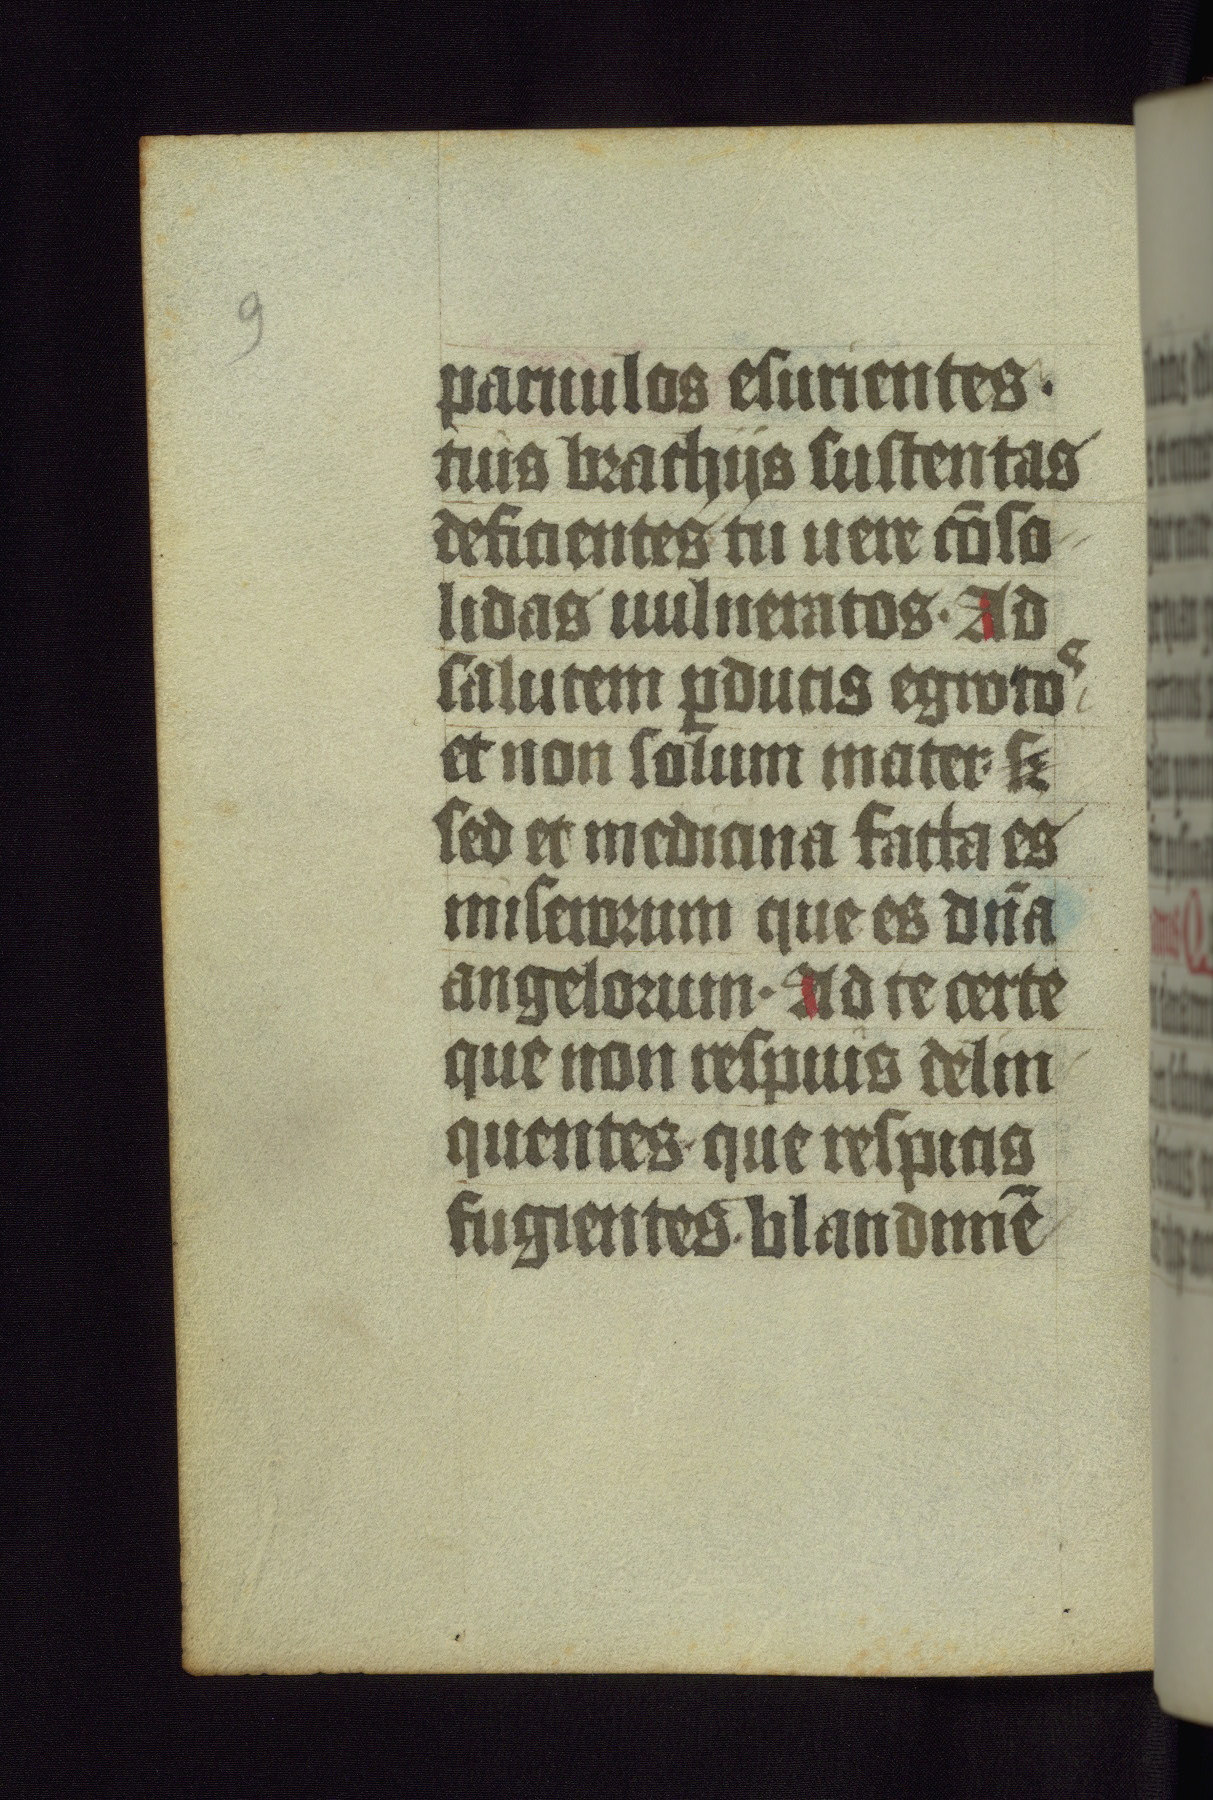 9
paruulos esurientes.
tuis brachijs sustentas
deficientes tu uere cōso
lidas uulneratos. Ad
salutem ꝑducis egrotos
et non solum mater
sed et medicina facta es
miserorum que es dn̄a
angelorum. Ad te certe
que non respuis delin
quentes. que respicis
fugientes. blandimē